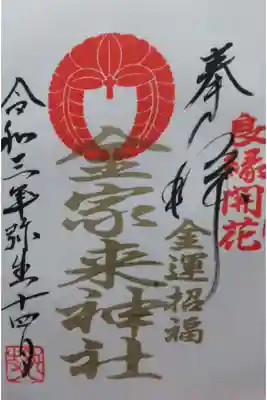 良縁開花
奉拝
金運招福
金家来神社
令和三年弥生十四日